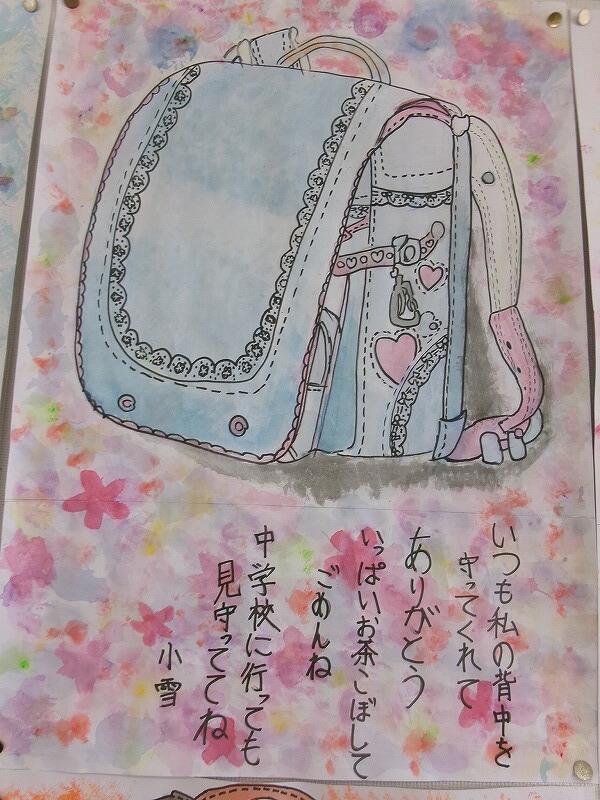 いつも私の背中を
守ってくれて
ありがとう
いっぱいお茶こぼして
ごめんね
中学校に行っても
見守っててね
小雪